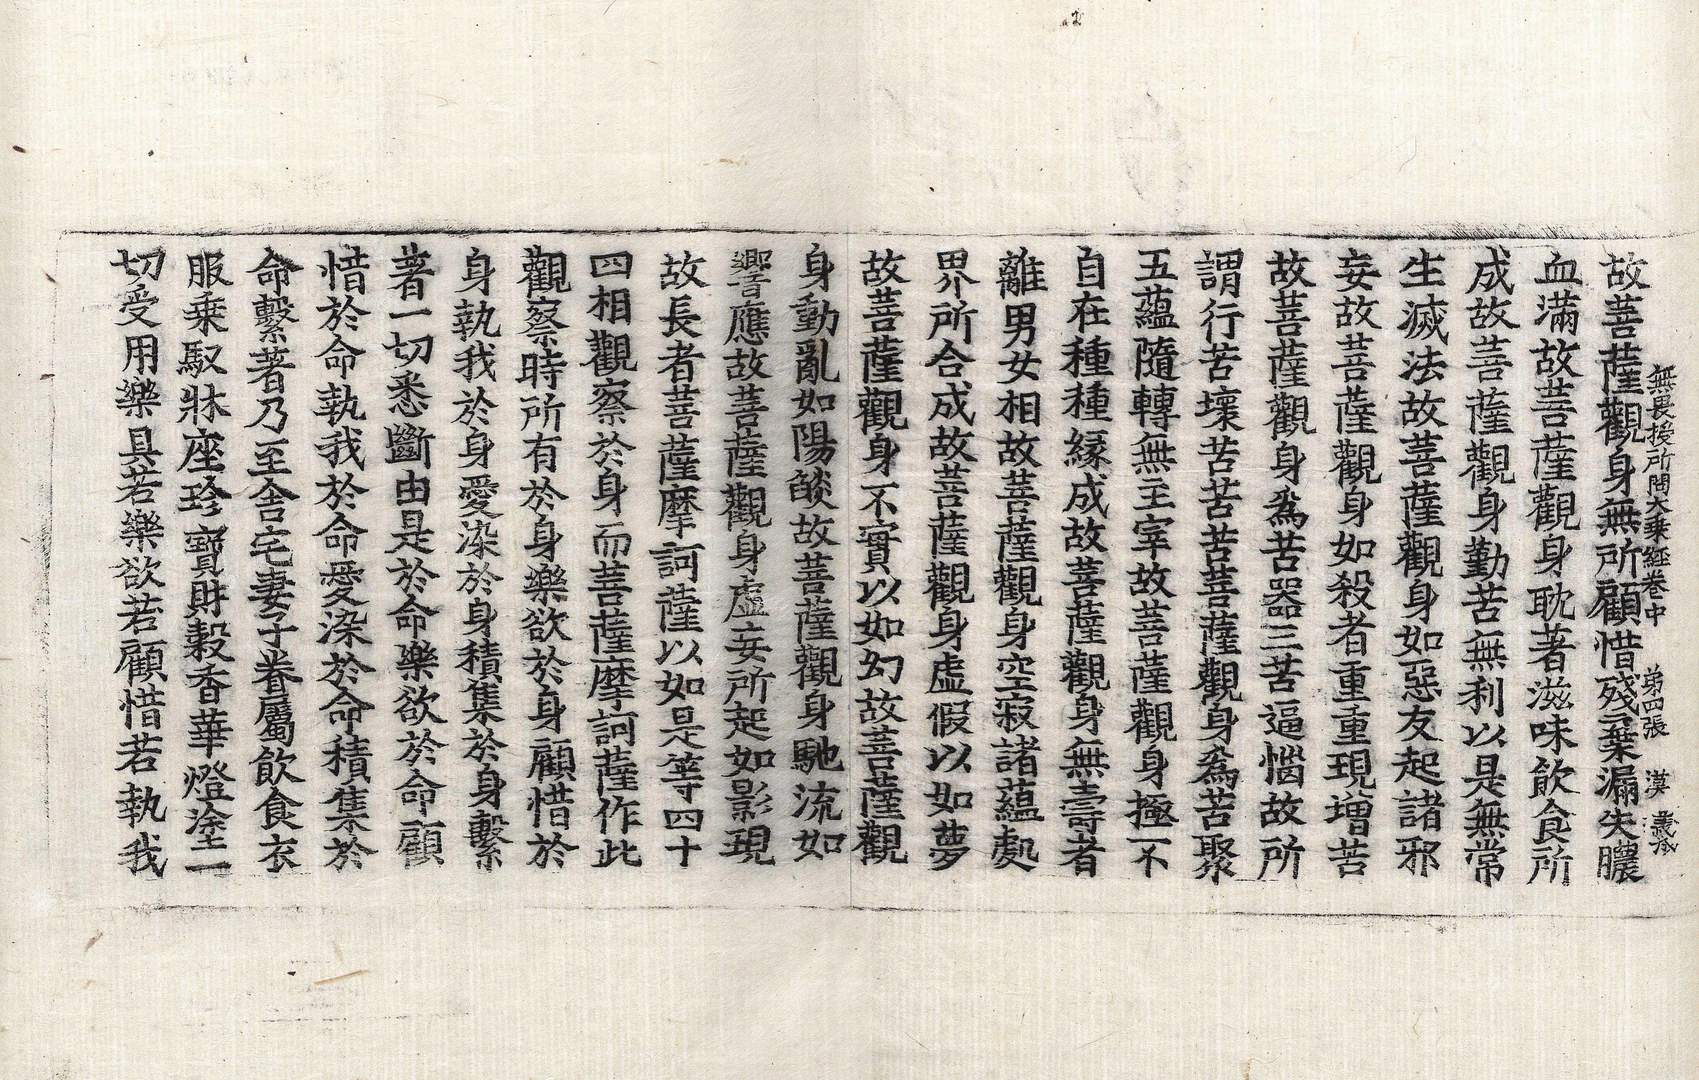 無畏授所問大乘經卷中 第四張 漢 義成
故菩薩觀身無所顧惜殘棄漏失膿
血滿故菩薩觀身耽著滋味飲食所
成故菩薩觀身勤苦無利以是無常
生滅法故菩薩觀身如惡友起諸邪
妄故菩薩觀身如殺者重重現增苦
故菩薩觀身為苦器三苦逼惱故所
謂行苦壞苦苦苦菩薩觀身為苦聚
五蘊隨轉無主宰故菩薩觀身極不
自在種種緣成故菩薩觀身無壽者
離男女相故菩薩觀身空寂諸蘊處
界所合成故菩薩觀身虛假以如夢
故菩薩觀身不實以如幻故菩薩觀
身動亂如陽燄故菩薩觀身馳流如
響應故菩薩觀身虛妄所起如影現
故長者菩薩摩訶薩以如是等四十
四相觀察於身而菩薩摩訶薩作此
觀察時所有於身樂欲於身顧惜於
身執我於身愛染於身積集於身繫
著一切悉斷由是於命樂欲於命顧
惜於命執我於命愛染於命積集於
命繫著乃至舍宅妻子眷屬飲食衣
服乘馭牀座珍寶財穀香華燈塗一
切受用樂具若樂欲若顧惜若執我